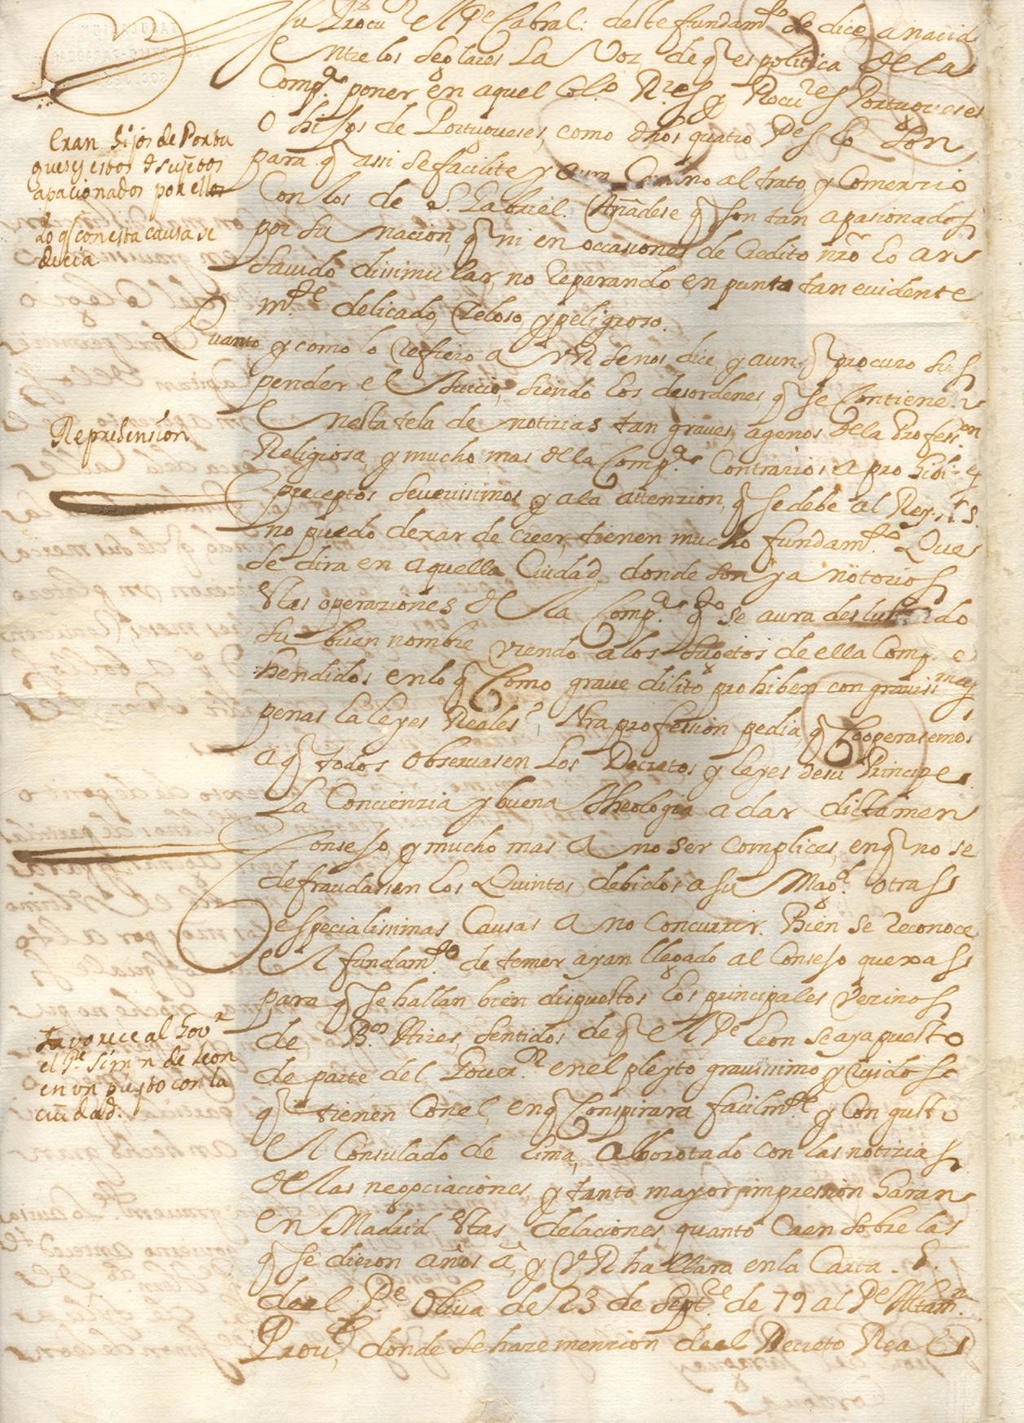 su Procu.r el P.e Cabral: deste fundam.to se dice, a nacid
entre los seglares la voz de q̃ es politica de la
Comp.a poner en aquel Col.o R.es y Procu.res Portugueses
o hijos de Portugueses, como dhos quatro P.es lo son,
para q̃ assi se facilite y abra camino al trato, y Comerzio
con los de S. Gabriel. Añadese q̃ son tan apasionados
por su nacion, q̃ ni en occasiones de credito nro lo an
savido disimular, no reparando en punto tan evidente
m.te delicado, zeloso, y peligroso.
Eran hijos de Portu
gueses estos dhos sujetos
apacionados por ellos
do q̃ con esta causa se
decia
Quanto y como lo refiero a V R se nos dice, y aunq̃ procuro sus
pender el Juicio, siendo los desordenes q̃ se contienen
en esta tela de noticias tan graves, agenos de la Profess.on
Religiosa, y mucho mas de la Comp.a Contrarios a prohibi-
preceptos severissimos y a la atenzion, q̃ se debe al Rey N S.
no puedo dexar de creer, tienen mucho fundam.to Que
se dira en aquella Ciudad, donde son ya notorios
estas operaziones de la Comp.a q̃ se aura deslus do
su buen nombre viendo a los sujetos de ella Comp e
hendidos en lo q̃ como grave dilito prohiben con graviss mas
penas la leyes Reales? Nra profession pedia, q̃ cooperasemos
a q̃ todos observasen los Decretos y leyes de su Principe.
Reprehension
La Concienzia y buena theologia a dar dictamen
Consejo, y mucho mas a no ser complices, en q̃ no se
defraudasen los Quintos debidos a su Mag.d otras
especialissimas causas a no concurrir. Bien se reconoce
el fundam.to de temer ayan llegado al Consejo quexas
para q̃ se hallan bien dispuestos los principales vezinos
de B.s Ayres, sentidos de q̃ el P.e Leon se aya puesto
de parte del Gover.or en el pleyto gravissimo y ruidoso
q̃ tienen con el, en q̃ conspirara facilm.te y con gusto
el Consulado de Lima, alborotado con las notizias
de las negociaciones, y tanto mayor impression haran
en Madrid estas delaciones, quanto caen sobre las
q̃ se dieron años a, y V R hallara en la Carta
del P.e Oliva de 23 de Sept.e de 79 al P.e Altam.
Prov.l, donde se haze menzion de el Decreto Real
Favorece al Gov.r
el P.e Simon de Leon
en un puesto con la
ciudad.